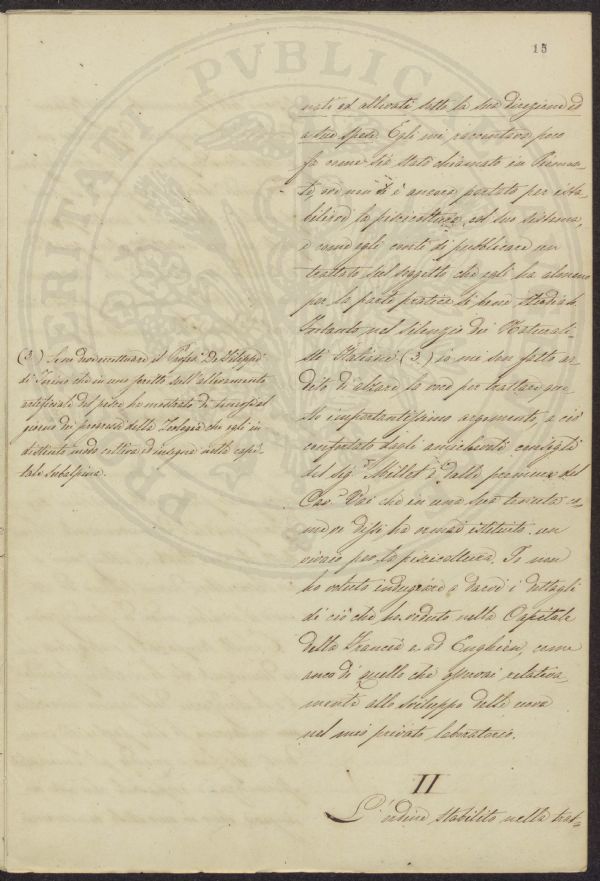 15
nati ed allevati sotto la sua direzione ed
a sue spese. Egli mi raccontava poco
fa come sia stato chiamato in Piemon-
te, ove non si è ancora portato per ista-
bilirvi la piscicoltura col suo sistema,
e come egli conti di pubblicare un
trattato sul soggetto che egli ha almeno
per la parte pratica sì bene studiato.
Soltanto nel silenzio dei Naturali-
sti Italiani (3.) io mi son fatto ar-
dito di alzare la voce per trattare que-
sto importantissimo argomento, a ciò
confortato dagli amichevoli consigli
del sig.r Millet e dalle premure del
Cav. Vai che in una sua tenuta co-
me vi dissi ha ormai istituito un
vivaio per la piscicoltura. Io non
ho voluto indugiare a darvi i dettagli
di ciò che ho veduto nella Capitale
della Francia e ad Enghien, come
anco di quello che osservai relativa-
mente allo sviluppo delle uova
nel mio privato laboratorio.
(3.) Devo rammentare il Profes. De Filippi
di Torino che in uno scritto sull'allevamento
artificiale del pesce ha mostrato di tenersi al
giorno dei progressi della Zoologia che egli in
distinto modo coltiva ed insegna nella capi-
tale Subalpina.
II
L'ordine stabilito nella trat-
PROSPERITATI PUBLICAE